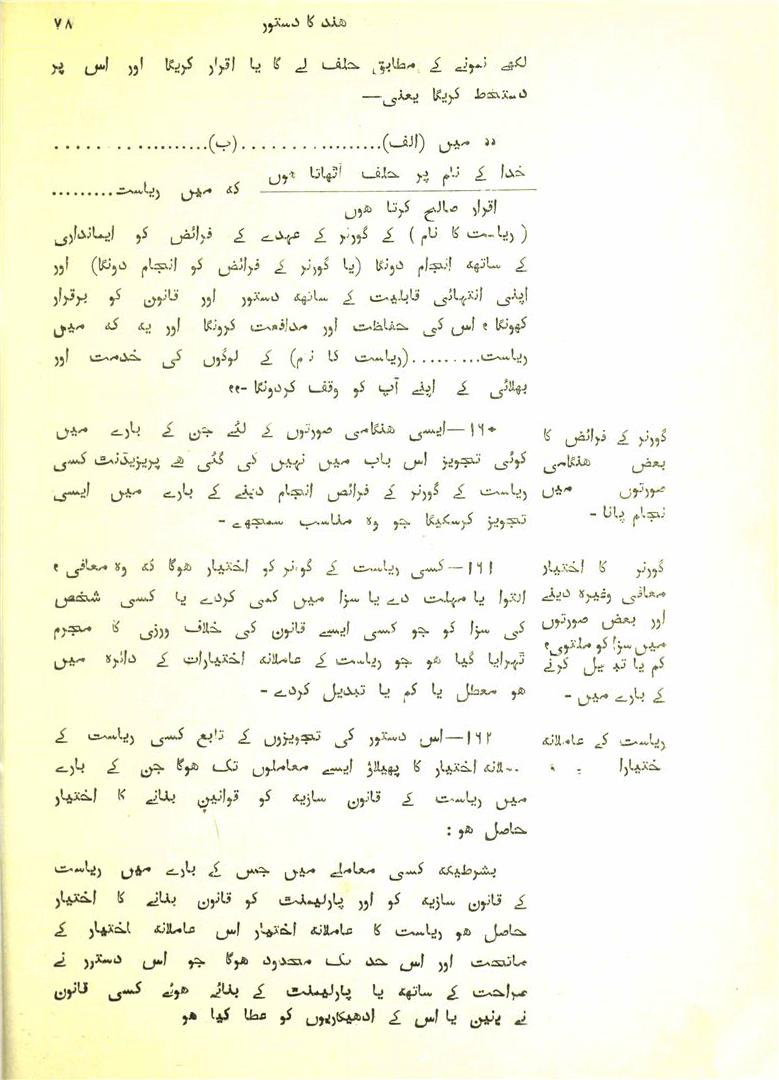 ۷۸
ھند کا دستور
لکھے نمونے کے مطابق حلف لے گا یا اقرار کریگا اور اس پر
دستخط کریگا یعنی—
”میں (الف)..................(ب)..................
خدا کے نام پر حلف اُٹھاتا ہوں
اقرار صالح کرتا ھوں
کہ میں ریاست.........
(ریاست کا نام) کے گورنر کے عہدے کے فرائض کو ایمانداری
کے ساتھ انجام دونگا (یا گورنر کے فرائض کو انجام دونگا) اور
اپنی انتہائی قابلیت کے ساتھ دستور اور قانون کو برقرار
کھونگا ، اس کی حفاظت اور مدافعت کرونگا اور یہ کہ میں
ریاست.........(ریاست کا نام) کے لوگوں کی خدمت اور
بھلائی کے اپنے آپ کو وقف کردونگا-“
گورنر کے فرائض کا
بعض ھنگامی
صورتوں میں
نجام پانا -
۱۶۰—ایسی ھنگامی صورتوں کے لئے جن کے بارے میں
کوئی تجویز اس باب میں نہیں کی گئی ھے پریزیڈنٹ کسی
ریاست کے گورنر کے فرائص انجام دینے کے بارے میں ایسی
تجویز کرسکیگا جو وہ مناسب سمجھے -
گورنر کا اختیار
معافی وغیرہ دینے
اور بعض صورتوں
میں سزا کو ملتوی،
کم یا تبدیل کرنے
کے بارے میں -
۱۶۱—کسی ریاست کے گورنر کو اختیار ھوگا کہ وہ معافی ،
التوا یا مہلت دے یا سزا میں کمی کردے یا کسی شخص
کی سزا کو جو کسی ایسے قانون کی خلاف ورزی کا مجرم
ٹہرایا گیا ھو جو ریاست کے عاملانہ اختیارات کے دائرہ میں
ھو معطل یا کم یا تبدیل کردے -
ریاست کے عاملانہ
ختیارا
۱۶۲—اس دستور کی تجویزوں کے تابع کسی ریاست کے
لانہ اختیار کا پھیلاؤ ایسے معاملوں تک ھوگا جن کے بارے
میں ریاست کے قانون سازیہ کو قوانین بنانے کا اختیار
حاصل ھو :
بشرطیکہ کسی معاملے میں جس کے بارے میں ریاست
کے قانون سازیہ کو اور پارلیمنٹ کو قانون بنانے کا اختیار
حاصل ھو ریاست کا عاملانہ اختیار اس عاملانہ اختیار کے
ماتحت اور اس حد تک محدود ھوگا جو اس دستور نے
صراحت کے ساتھ یا پارلیمنٹ کے بنائے ھوئے کسی قانون
نے یونین یا اس کے ادھیکاریوں کو عطا کیا ھو